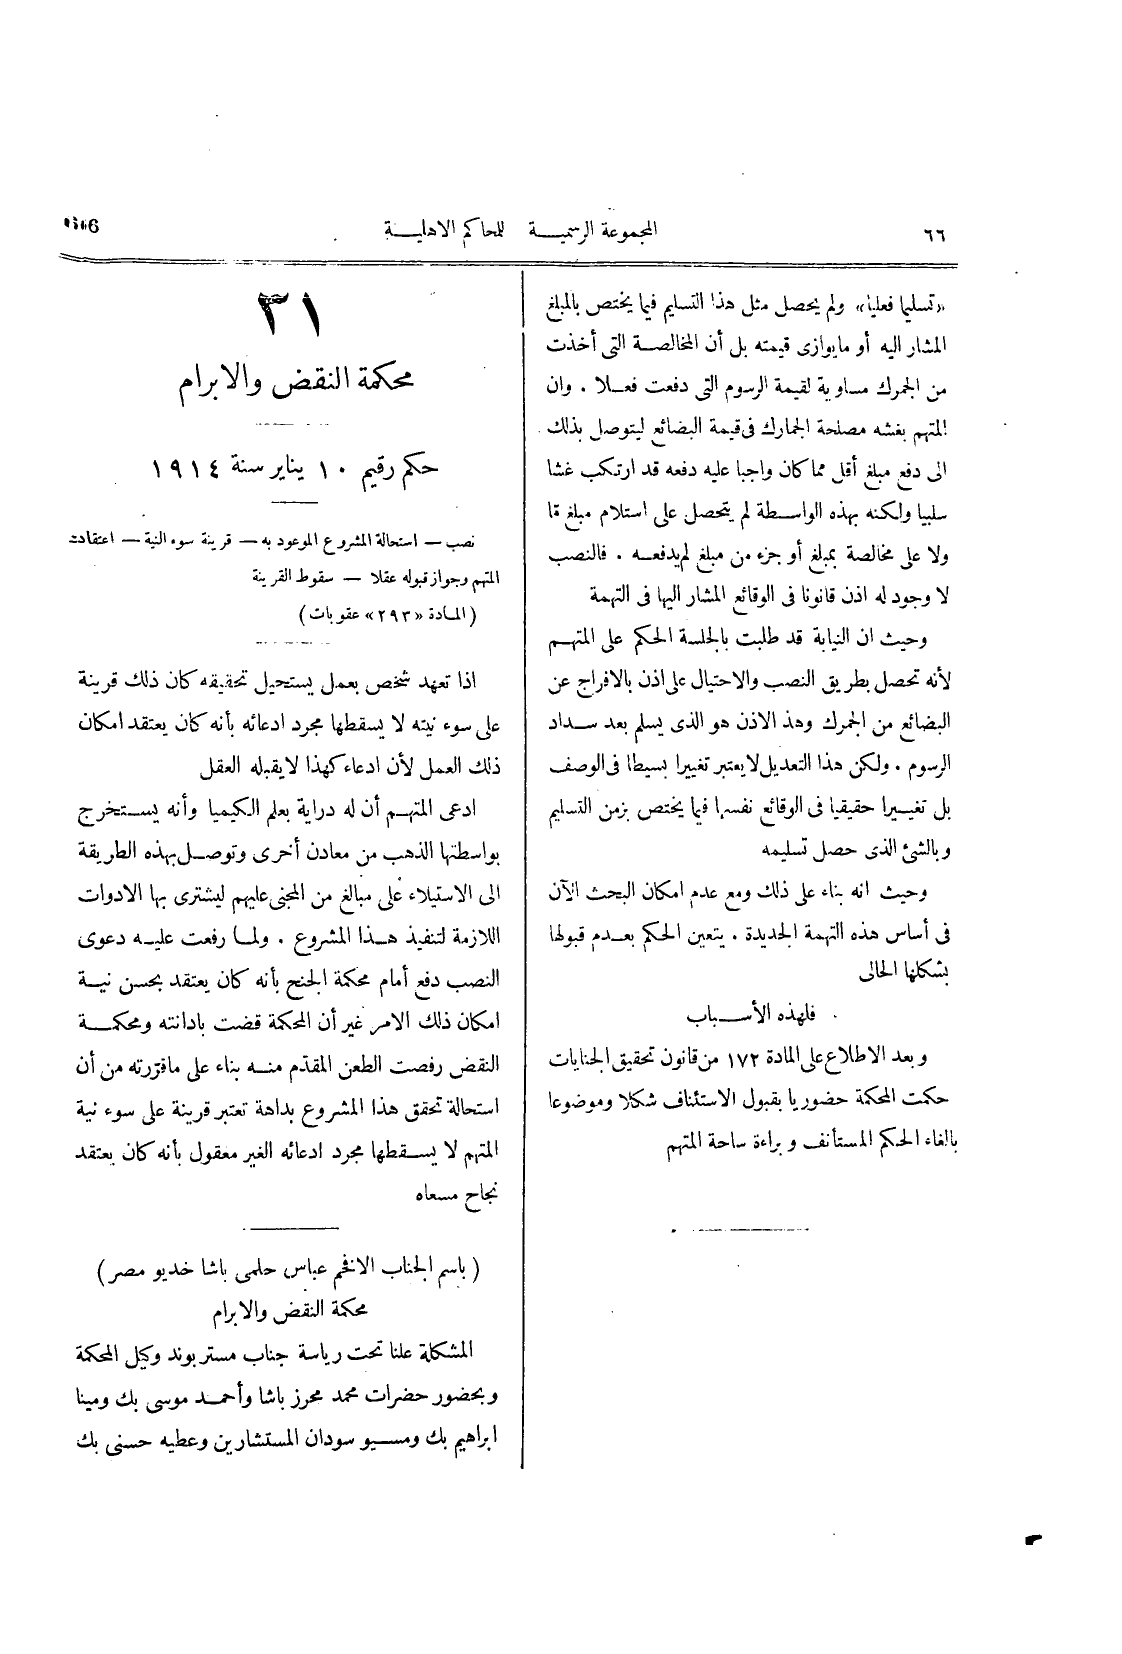 ٦٦
المجموعة الرسمية للمحاكم الاهلية
«تسليما فعليا» ولم يحصل مثل هذا التسليم فيما يختص بالمبلغ
المشار اليه أو مايوازى قيمته بل أن المخالصة التى أخذت
من الجمرك مساوية لقيمة الرسوم التى دفعت فعلا . وان
المتهم بغشه مصلحة الجمارك فى قيمة البضائع ليتوصل بذلك
الى دفع مبلغ أقل مما كان واجبا عليه دفعه قد ارتكب غشا
سلبيا ولكنه بهذه الواسطة لم يتحصل على استلام مبلغ ما
ولا على مخالصة بمبلغ أو جزء من مبلغ لم يدفعه . فالنصب
لا وجود له اذن قانونا فى الوقائع المشار اليها فى التهمة
وحيث ان النيابة قد طلبت بالجلسة الحكم على المتهم
لأنه تحصل بطريق النصب والاحتيال على اذن بالافراج عن
البضائع من الجمرك وهذ الاذن هو الذى يسلم بعد سداد
الرسوم . ولكن هذا التعديل لا يعتبر تغييرا بسيطا فى الوصف
بل تغييرا حقيقيا فى الوقائع نفسها فيما يختص بزمن التسليم
وبالشئ الذى حصل تسليمه
وحيث انه بناء على ذلك ومع عدم امكان البحث الآن
فى أساس هذه التهمة الجديدة . يتعين الحكم بعدم قبولها
بشكلها الحالى
فلهذه الأسباب
وبعد الاطلاع على المادة ١٧٢ من قانون تحقيق الجنايات
حكمت المحكمة حضوريا بقبول الاستئناف شكلا وموضوعا
بالغاء الحكم المستأنف وبراءة ساحة المتهم
٣١
محكمة النقض والابرام
حكم رقيم ١٠ يناير سنة ١٩١٤
نصب — استحالة المشروع الموعود به — قرينة سوء النية — اعتقاد
المتهم وجواز قبوله عقلا — سقوط القرينة
(المادة «٢٩٣» عقوبات)
اذا تعهد شخص بعمل يستحيل تحقيقه كان ذلك قرينة
على سوء نيته لا يسقطها مجرد ادعائه بأنه كان يعتقد امكان
ذلك العمل لأن ادعاء كهذا لا يقبله العقل
ادعى المتهم أن له دراية بعلم الكيميا وأنه يستخرج
بواسطتها الذهب من معادن أخرى وتوصل بهذه الطريقة
الى الاستيلاء على مبالغ من المجنى عليهم ليشترى بها الادوات
اللازمة لتنفيذ هذا المشروع . ولما رفعت عليه دعوى
النصب دفع أمام محكمة الجنح بأنه كان يعتقد بحسن نية
امكان ذلك الامر غير أن المحكمة قضت بادانته ومحكمة
النقض رفصت الطعن المقدّم منه بناء على ماقرّرته من أن
استحالة تحقق هذا المشروع بداهة تعتبر قرينة على سوء نية
المتهم لا يسقطها مجرد ادعائه الغير معقول بأنه كان يعتقد
نجاح مسعاه
(باسم الجناب الافخم عباس حلمى باشا خديو مصر)
محكمة النقض والابرام
المشكلة علنا تحت رياسة جناب مستر بوند وكيل المحكمة
وبحضور حضرات محمد محرز باشا وأحمد موسى بك ومينا
ابراهيم بك ومسيو سودان المستشارين وعطيه حسنى بك